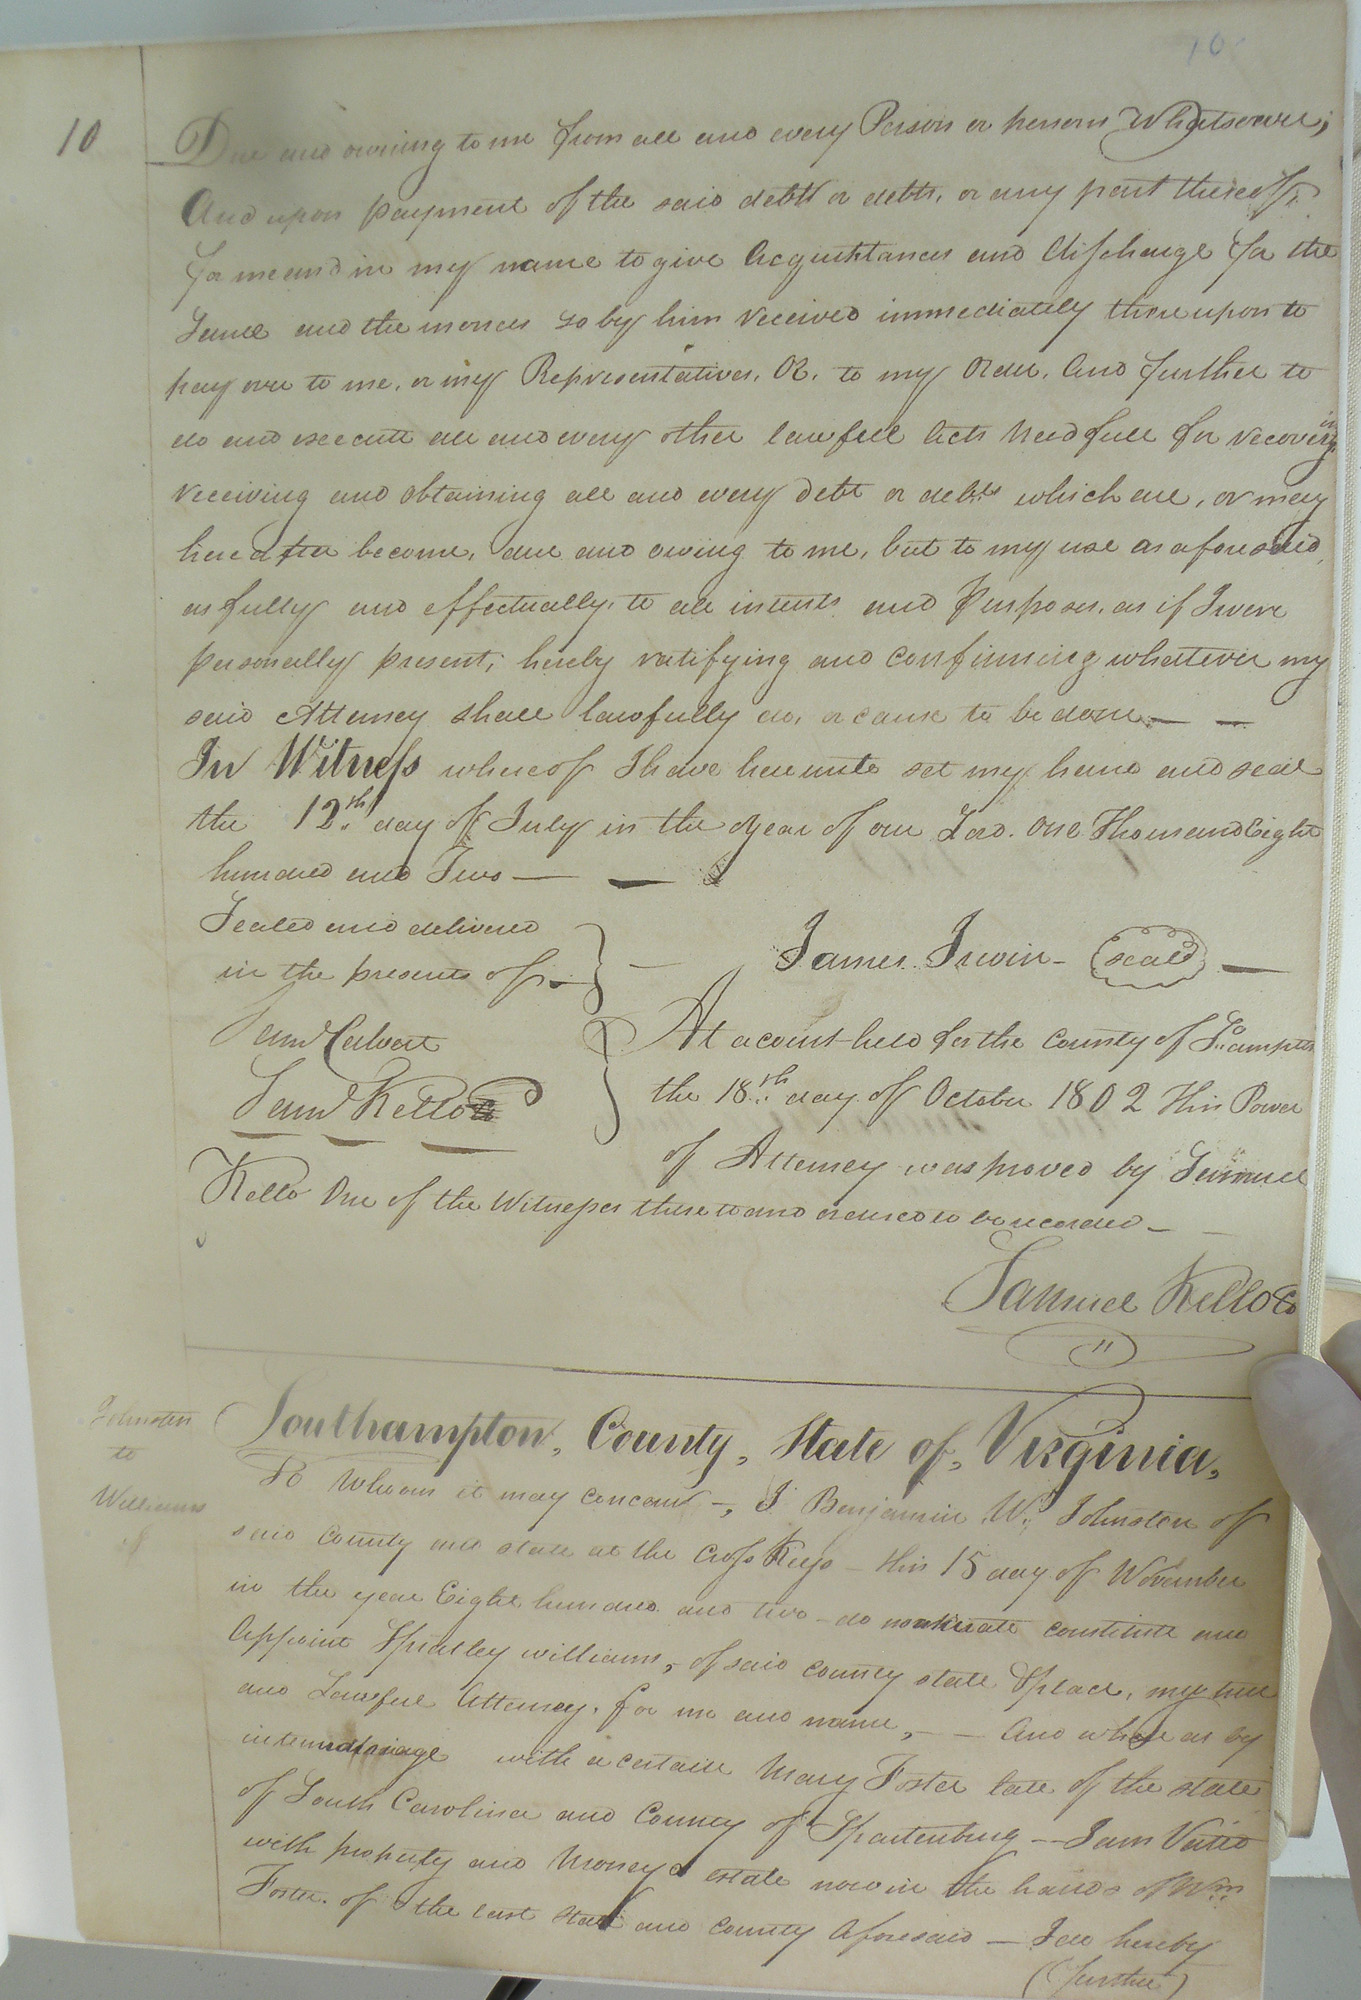 10
10
Due and owning to me from all and every Person or persons Whatsoever;
And upon payment of the said debt or debts, or any part thereof,
for me and in my name to give Acquittances and discharge for the
Same and the monies so by him received immediately there upon to
pay over to me, or my Representatives, OR, to my Order, And further to
do and execute all and every other lawfull Acts Needfull for recovering
receiving and obtaining all and every debt or debts which are, or may
hereafter become, due and owing to me, but to my use as aforesaid,
as fully and effectually, to all intents and Purposes, as if I were
personally present; hereby ratifying and confirming whatever my
said Attorney shall lawfully do, or cause to be done — —
In Witness whereof I have hereunto set my hand and seal
the 12th day of July in the year of our Lord. One Thousand Eight
hundred and Two — —
Sealed and delivered
in the presents of —
James Irwin - seal —
Saml Calvert
Saml Kello
At a court held for the County of So.ampton
the 18th day of October 1802 This Power
of Attorney was proved by Samuel
Kello One of the Witnesses thereto and ordered to be recorded —
Samuel Kello
Johnston
to
Williams
Southampton, County, State of, Virginia,
To Whom it may concern -, I Benjamin W. Johnston of
said County and state at the Cross Keys - this 15 day of November
in the year Eight hundred and two - do nominate constitute and
Appoint Spratley williams, of said county state & place, my true
and Lawfull Attorney, for me and name, - — And where as by
intermarriage with a certain Mary Foster late of the state
of South Carolina and County of Spartenburg — I am Vested
with property and Money & estate now in the hands of Wm
Foster of the last State and County Aforesaid — I do hereby
(further)